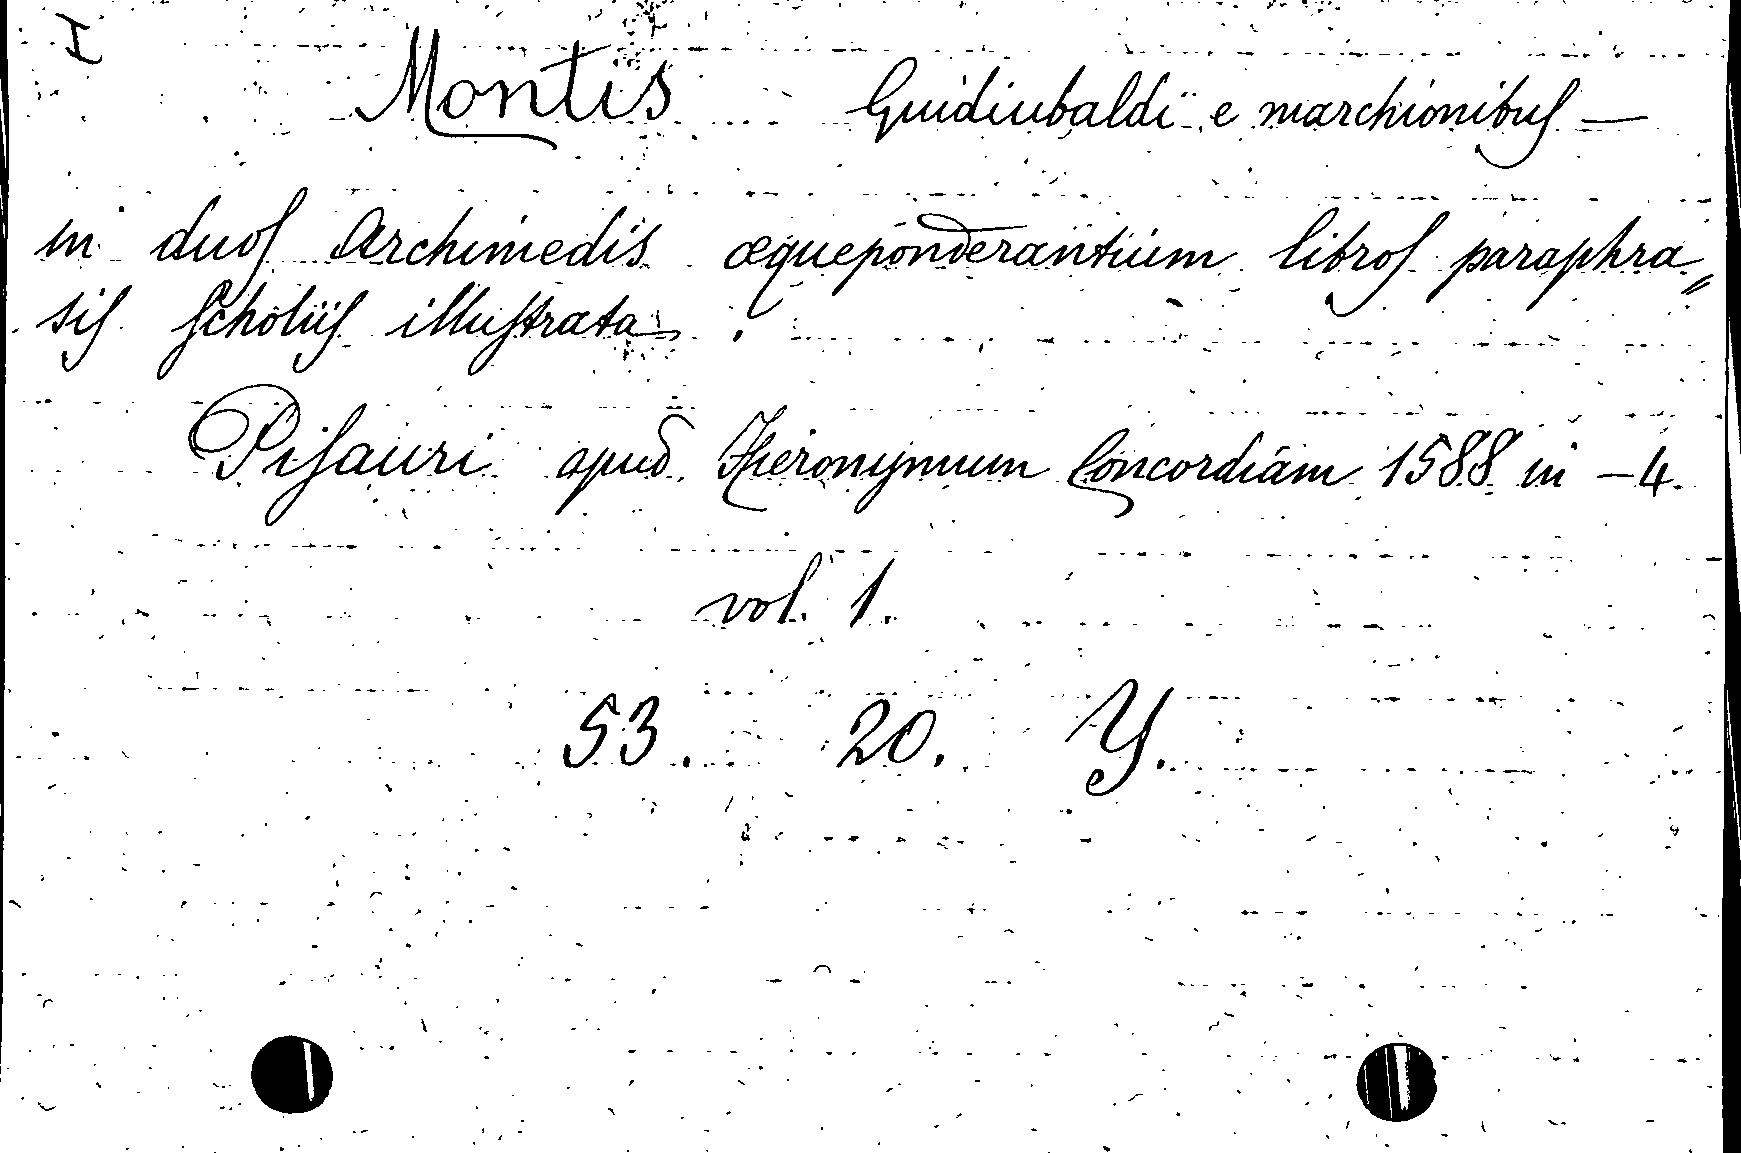 I
Montis Guidiubaldi e marchionibus —
in duos Archimedis æqueponderantium libros paraphra„
sis scholiis illustrata .
Pisauri apud Hieronymum Concordiam 1588 in -4.
vol. 1.
53. 20. Y.